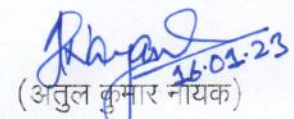 16.01.23
(अतुल कुमार नायक)